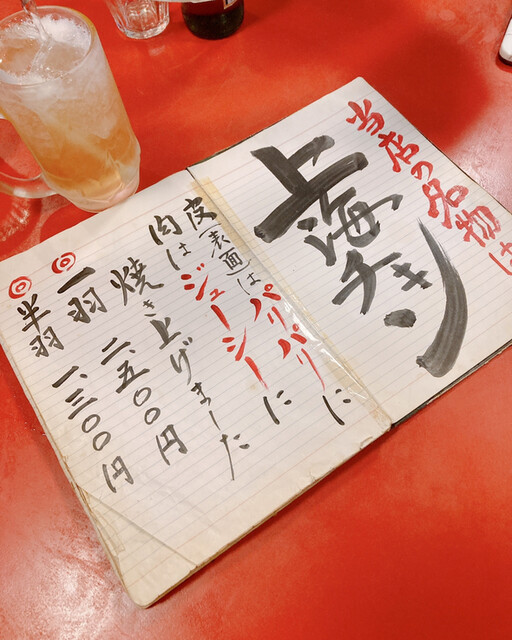 当店の名物は
上海チキン
皮(表面)はパリパリに
肉はジューシーに
焼き上げました
◎一羽 二、五〇〇円
◎半羽 一、三〇〇円